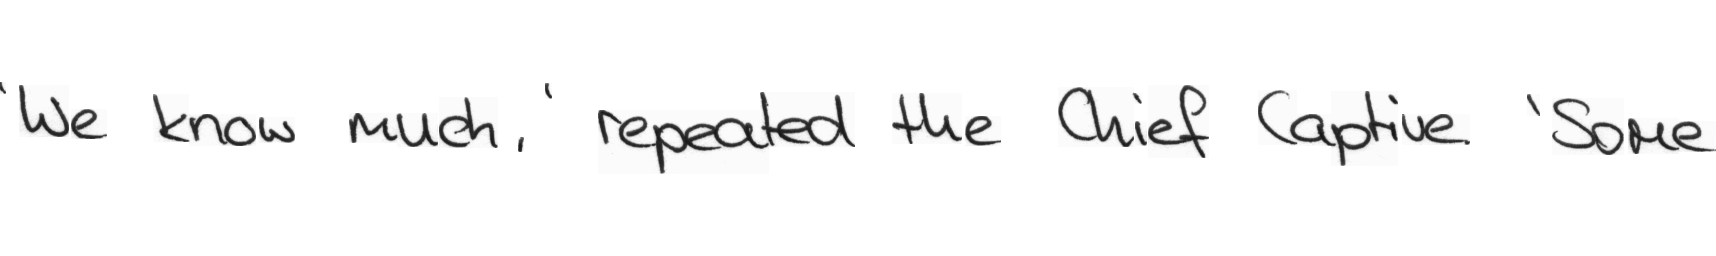 'We know much,' repeated the Chief Captive. 'Some